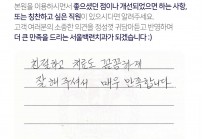 본원을 이용하시면서 좋으셨던 점이나 개선되었으면 하는 사항,
또는 칭찬하고 싶은 직원이 있으시다면 알려주세요.
고객 여러분의 소중한 의견을 정성껏 귀담아듣고 반영하며
더 큰 만족을 드리는 서울백련치과가 되겠습니다 :)
친절하게 치료도 꼼꼼하게
잘해 주셔서 매우 만족합니다